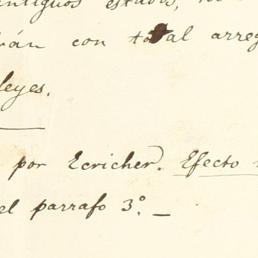 antiguos estados,
án con total arreg
leyes.
por Ecricher. Efecto
el parrafo 3º. _